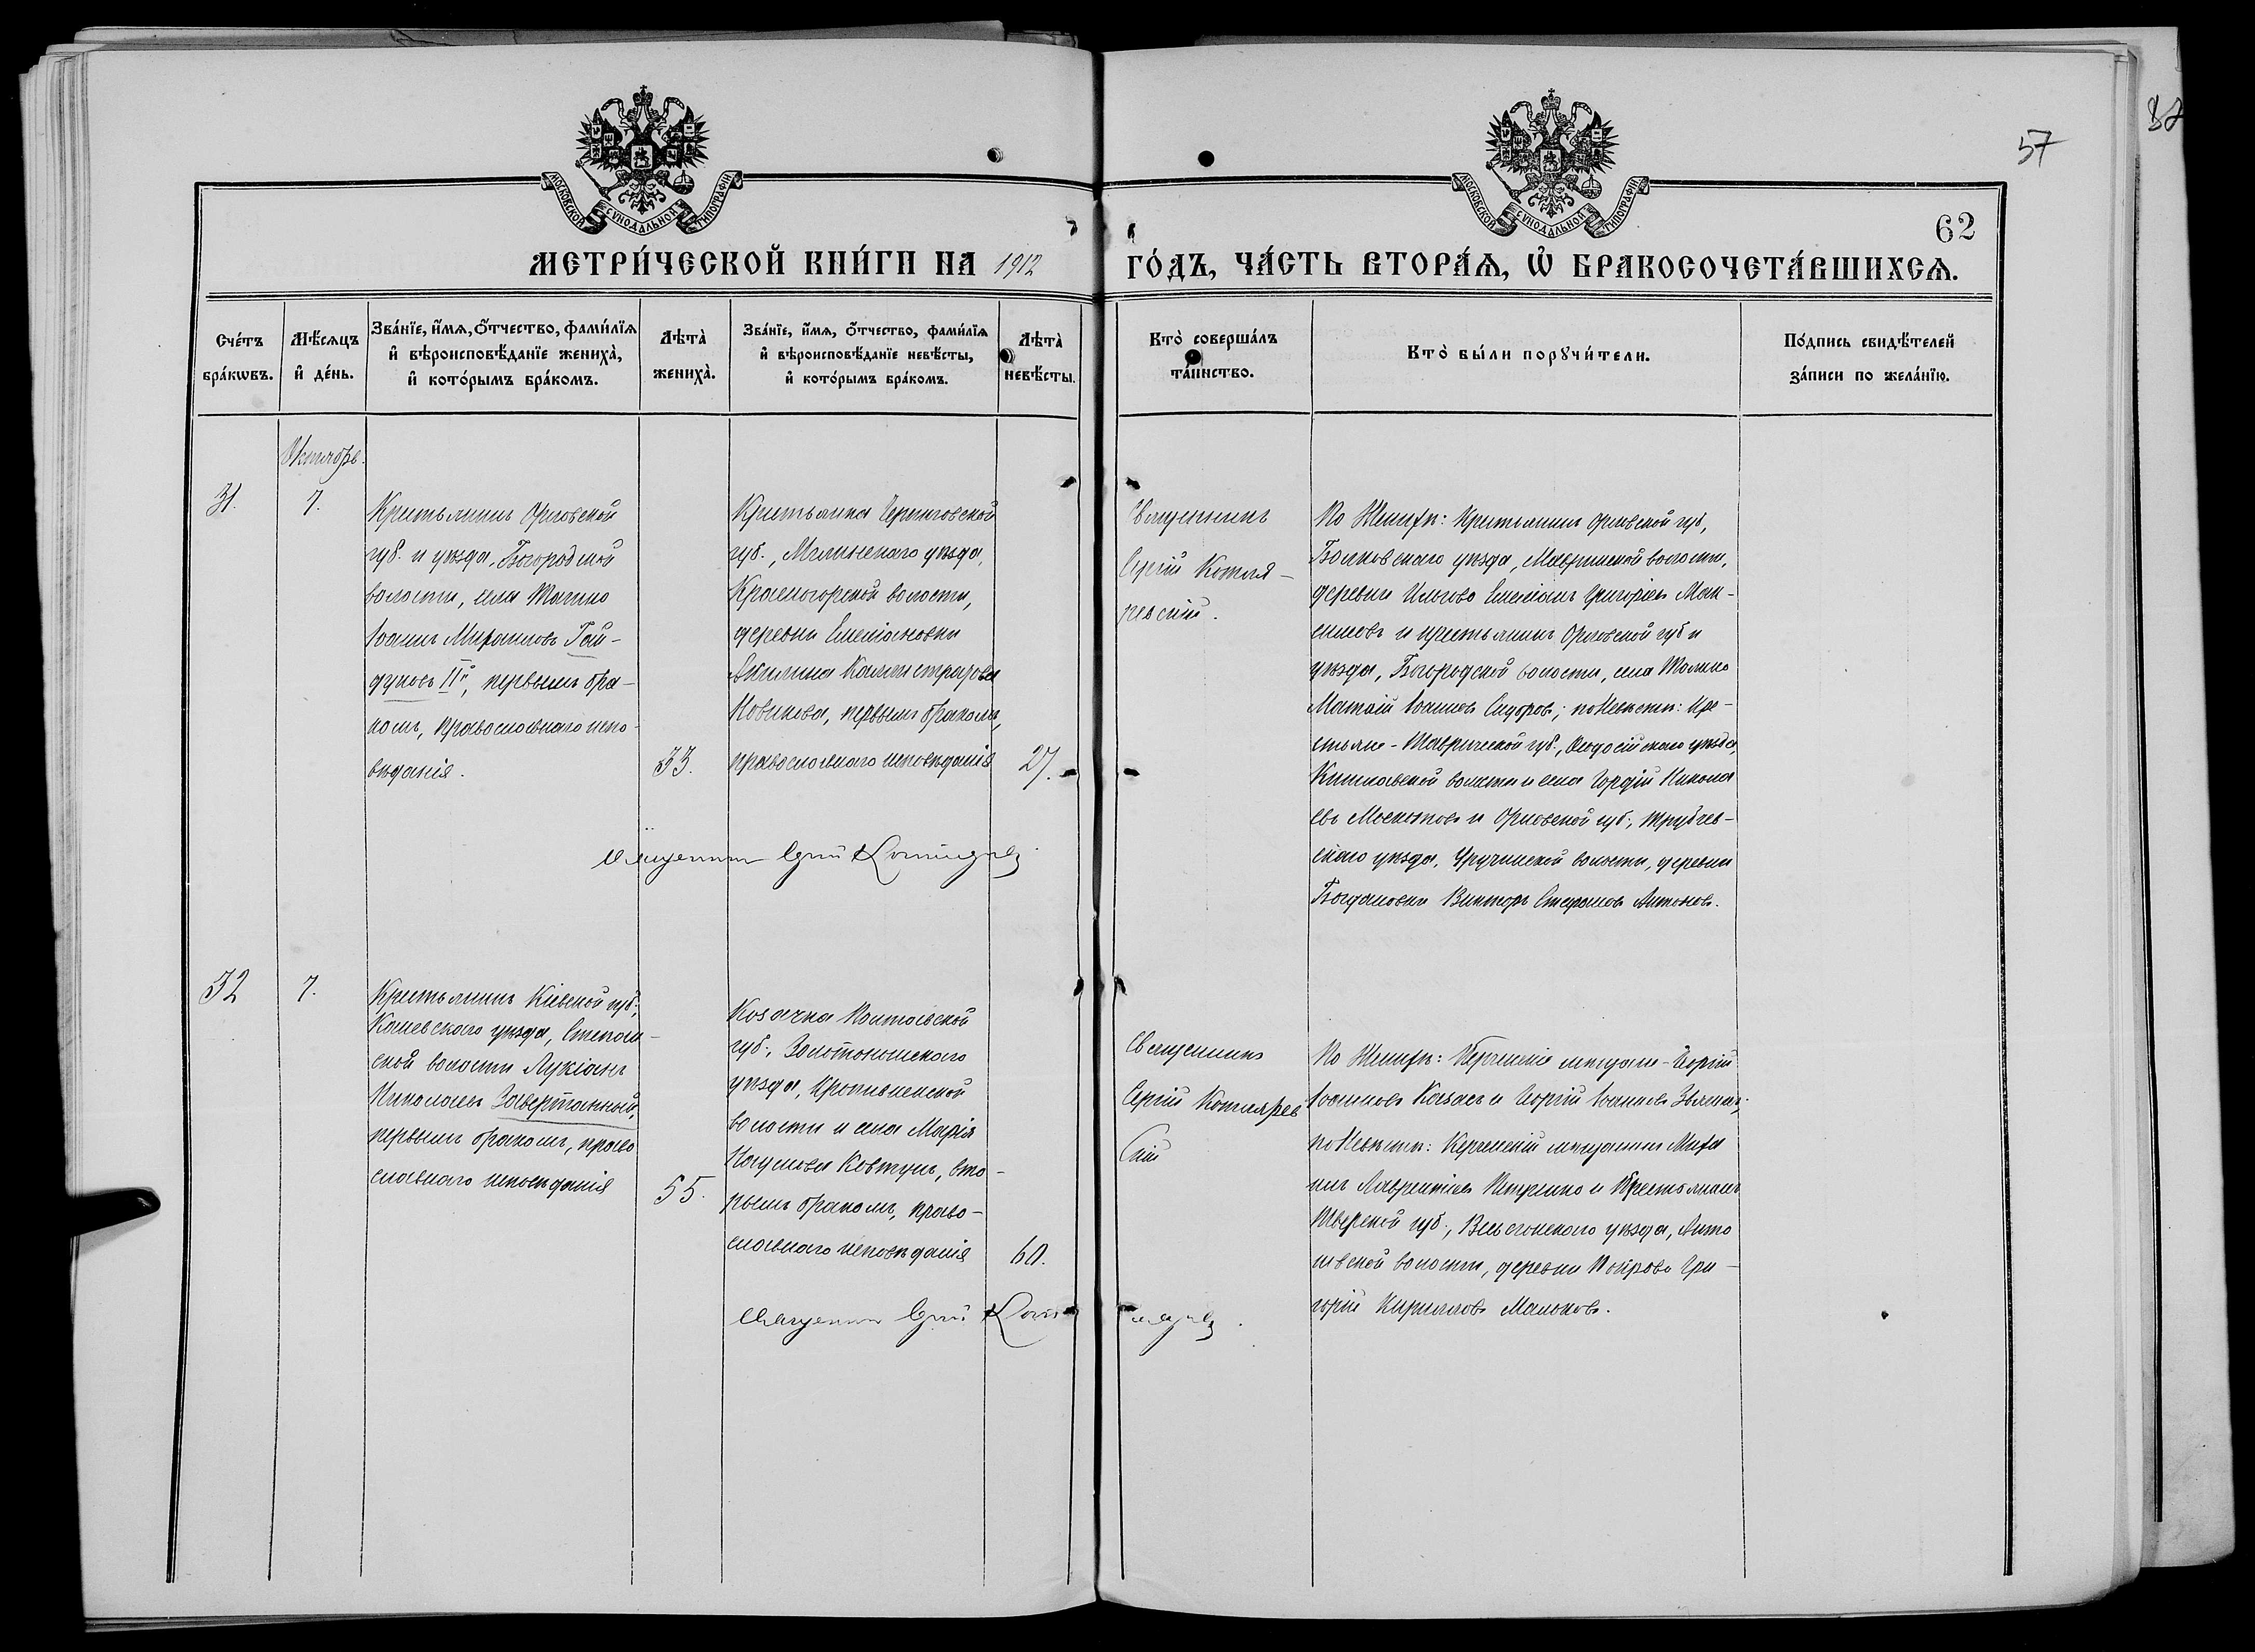 57
62
МОСКОВСКОЙ СУНОДАЛЬНОЙ ТИПОГРАФІИ
МОСКОВСКОЙ СУНОДАЛЬНОЙ ТИПОГРАФІИ
МЕТРИ́ЧЕСКОЙ КНИ́ГИ НА 1912 ГО́ДЪ, ЧА́СТЬ ВТОРА́Ѧ, Ѡ҆ БРАКОСОЧЕТА́ВШИХСѦ.
Сче́тъ бра́кѡвъ.
Мѣ́сѧцъ и҆ де́нь.
Зва́нїе, и҆́мѧ, ѻ҆́тчество, фами́лїѧ и҆ вѣроисповѣ́данїе жениха̀, и҆ кото́рымъ бра́комъ.
Лѣта̀ жениха̀.
Зва́нїе, и҆́мѧ, ѻ҆́тчество, фами́лїѧ и҆ вѣроисповѣ́данїе невѣ́сты, и҆ кото́рымъ бра́комъ.
Лѣта̀ невѣ́сты.
Кто̀ соверша́лъ та́инство.
Кто̀ бы́ли порꙋчи́тели.
По́дпись свидѣ́телей за́писи по жела́нїю.
Октябрь.
31.
7.
Крестьянинъ Орловской
губ. и уѣзда, Богородской
волости, села
Іоаннъ Гай-
дуковъ II й, первымъ бра-
комъ, православнаго испо-
вѣданія.
33.
Крестьянка Черниговской
губ., Мглинскаго уѣзда,
Красногорской волости,
деревни Емеліановки
Акилина Каллистратова
Новикова, первымъ бракомъ,
православнаго исповѣданія
27.
Священникъ
Сергій Котля-
ревскій.
По Женихѣ: Крестьянинъ Орловской губ,
Болховскаго уѣзда, волости,
деревни Емеліанъ Григоріевъ Мак-
симовъ и крестьянинъ Орловской губ и
уѣзда, Богородской волости, села
Матѳій Іоанновъ Сидоровъ; по Невѣстѣ: Кре-
стьяне - Таврической губ., Ѳеодосійскаго уѣзда,
волости и села Гордій Никола
евъ и Орловской губ., Трубчев-
скаго уѣзда, волости, деревни
Богдановки Викторъ Стефановъ Антоновъ.
Священникъ Сергій
32
7.
Крестьянинъ Кіевской губ.,
Каневскаго уѣзда,
ской волости Лукіанъ
Николаевъ Завертанный,
первымъ бракомъ, право
славнаго исповѣданія
55.
Козачка Полтавской
губ., Золотоношскаго
уѣзда, Кропивненской
волости и села Марія
Наумова Ковтунъ, вто-
рымъ бракомъ, право-
славнаго исповѣданія
60.
Священникъ
Сергій Котлярев
скій
По Женихѣ: Керченскіе мѣщане - Георгій
Іоанновъ Казасъ и Георгій Іоанновъ
по Невѣстѣ: Керченскій мѣщанинъ Миха
илъ Лаврентіевъ Петренко и Крестьянинъ
Тверской губ., Весьегонскаго уѣзда,
волости, деревни Гри-
горій Кирилловъ Мальковъ.
Священникъ Сергій